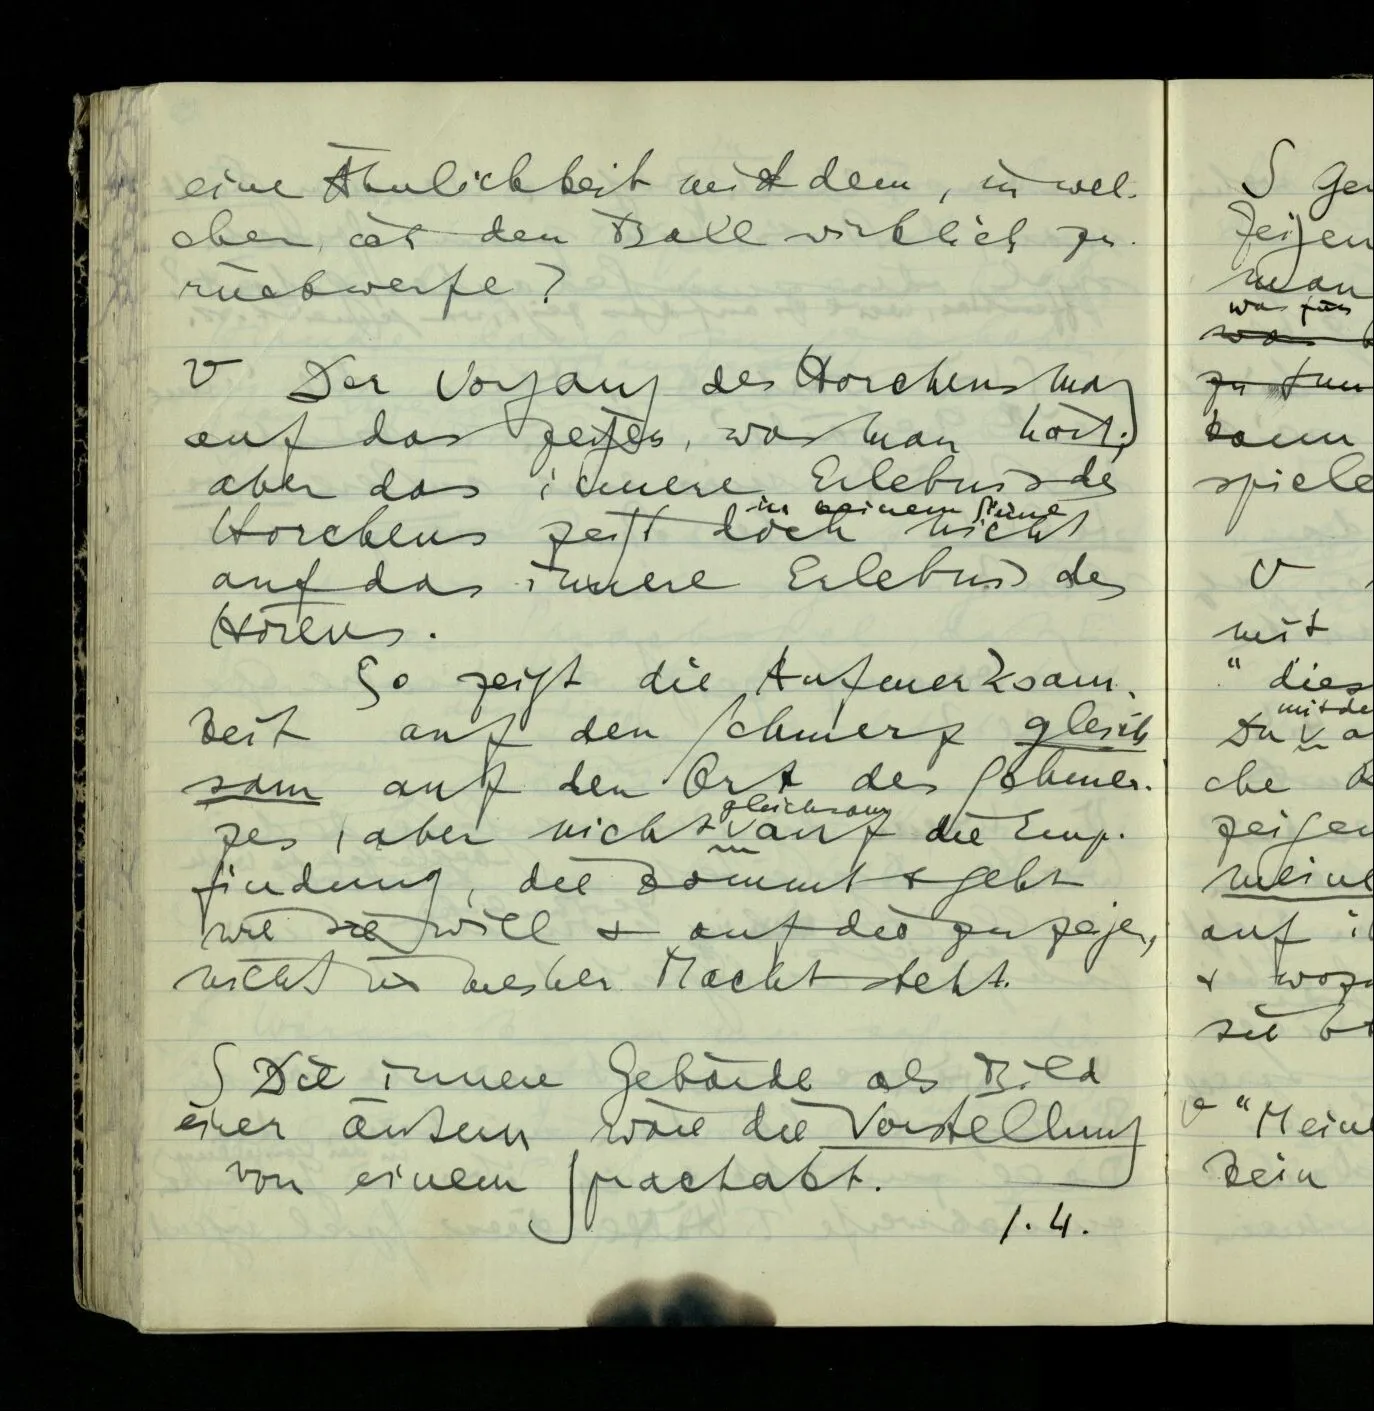 eine Ähnlichkeit mit dem, in wel-
cher ich den Ball wirklich zu-
rückwerfe?
v Der Vorgang des Horchens mag
auf das zeigen, was man hört;
aber das innere Erlebnis des
in keinem Sinne
Horchens zeigt doch nicht
auf das innere Erlebnis des
Hörens.
So zeigt die Aufmerksam-
keit auf den Schmerz gleich
sam auf den Ort des Schmer-
gleichsam
zes, aber nicht auf die Emp-
findung, die kommt & geht
wie sie will & auf die zu zeigen,
nicht in meiner Macht steht.
S Die innere Gebärde als Bild
einer äußern wäre die Vorstellung
von einem Sprachakt.
1.4.
S
man
was
spiele
v
mit
" dies
mit de
Du
auf
&
sie
" Mein
kein